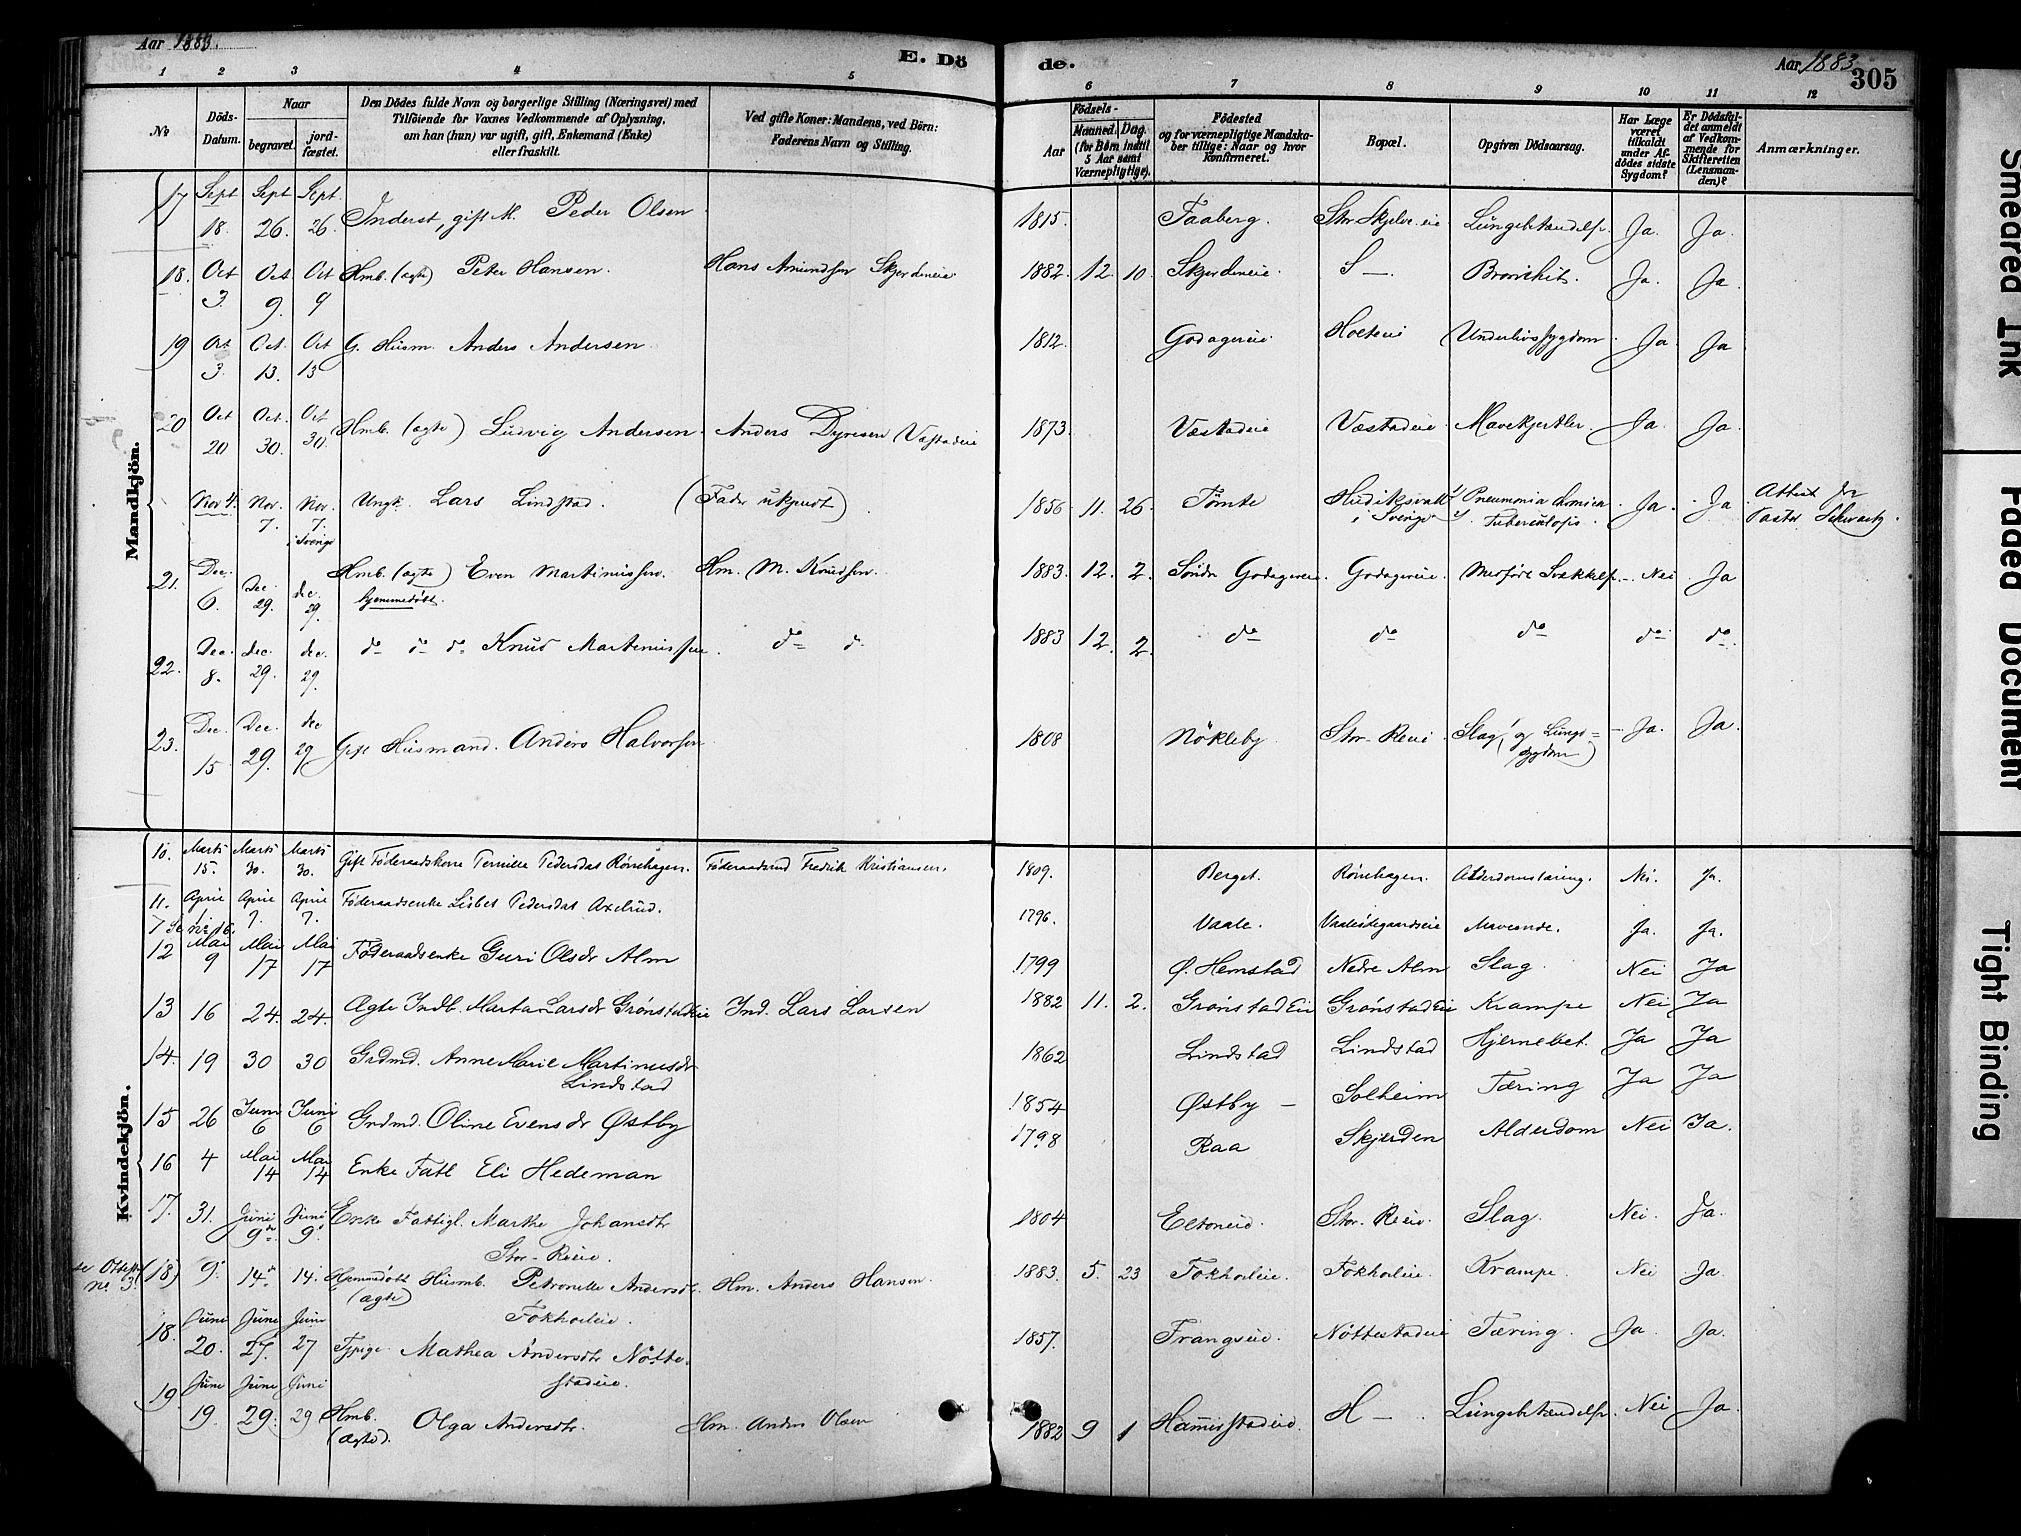 Aar 1883.
E. Dö de.
Aar 1883.
305
1 2 3 4 5 6 7 8 9 10 11 12
No
Döds-Datum.
Naar
begravet.
jordfæstet.
Den Dödes fulde Navn og borgerlige Stilling (Næringsvei) med
Tilföiende for Voxnes Vedkommende af Oplysning,
om han (hun) var ugift, gift, Enkemand (Enke)
eller fraskilt.
Ved gifte Koner: Mandens, ved Börn:
Faderens Navn og Stilling.
Födsels-
Aar
Maaned. Dag.
(for Börn indtil
5 Aar samt
Værnepligtige).
Födested
og for værnepligtige Mandskaber tillige: Naar og hvor
Konfirmeret.
Bopæl.
Opgiven Dödsaarsag.
Har Læge
været
tilkaldt
under Afdödes sidste
Sygdom?
Er Dödsfaldet anmeldt
af Vedkommende for
Skifteretten
(Lensmanden)?
Anmærkninger.
Mandkjön.
17 Sept 18. Sept 26. Sept 26. Inderst, gift M. Peder Olsen 1815. Faaberg. Stor Skjelve eie Lungebetændelse. Ja. Ja.
18. Oct 3. Oct 9. Oct 9 Hmb. (ægte) Peter Hansen. Hans Amundsen Skjerdeneie 1882. 12. 10. Skjerdeneie. S — Bronchit. Ja. Ja.
19 Oct 3. Oct. 13. Oct 13 G. Husm. Anders Andersen 1812. Godagereie. Holteeie Underlivssygdom. Ja Ja
20 Oct 20 Oct. 30. Oct 30. Hmb. (ægte) Ludvig Andersen. Anders Dyresen Væstadeie 1873. Væstadeie Væstadeie. Mavekjertler. Ja. Ja.
Nov 4. Nov. 7. Nov. 7. i Sverige Ungk. Lars Lindstad. (Fader ukjendt) 1856 11. 26. Tømte Hudiksvall i Sverige Pneumonia chronica Tuberculosis. Ja. Ja Attest fra Pastor Schwartz.
21. Dec. 6. Dec 29. dec. 29. Hmb. (ægte) Even Martinussen. Hm. M. Knudsen. 1883. 12. 2. Søndr Godagereie. Godagereie. Medfødt Svækkelse. Nei Ja
hjemmedøbt.
22. Dec. 8. dec. 29. dec. 29. do do do Knud Martinussen. do d. 1883 12. 2. do do do do do
23. Dec. 15 Dec. 29. dec 29 Gift Husmand. Anders Halvorsen 1808 Nökleby Stor-Reeie. Slag, og Lunge=sygdom) Ja. Ja.
Kvindekjön.
10. Marts 15. Marts 30. Marts 30. Gift Föderaadskone Pernille Pedersdat Rönehagen. Föderaadsmd Fredrik Kristiansen. 1809. Berget. Rönehagen. Alderdomstæring. Nei. Ja.
11. April 7 April 7. April 7. Föderaadsenke Lisbet Pedersdat Axelrud. 1796. Vaale. Vaaleödegaardseie Maveonde. Ja. Ja.
12 Mai 9 Mai 17 Mai 17 Föderaadsenke Guri Olsdr Alm 1799 Ø. Hemstad Nedre Alm Slag. Nei Ja
13 16 24. 24. Ægte Indb. Marta Larsdr Grönstadeie Ind. Lars Larsen 1882 11. 2. Grønstad Eie Grønstad Eie Krampe Nei Ja
14. 19 30 30 Grdmd. Anne Marie Martinusdr Lindstad 1862 Lindstad Lindstad Hjernebet. Ja Ja
15 26 Juni 6 Juni 6 Grdmd. Oline Evensdr Østby 1854 Østby — Solheim Tæring Ja Ja
16 4 Mai 14 Mai 14 Enke Fatt. Eli Hedeman 1798 Raa Skjerden Alderdom Nei Ja.
17. 31. Juni 9de. Juni 9. Enke Fattigl. Marthe Johansdtr Stor-Reeie. 1804 Eltoneie. Stor-Reeie. Slag. Nei. Ja.
(18) 9. 14. 14. Hjemmedöbt Husmb. Petronelle Andersdtr. Hm. Anders Hansen. 1883. 5. 23 Fokholeie. Fokholeie. Krampe. Nei Ja.
(ægte) Fokholeie.
18. Juni 20. Juni 27. Juni 27 Tjpige. Mathea Andersdtr Nöttestadeie. 1857. Frangseie. Nöttestadeie Tæring. Ja. Ja.
19. Juni 19. Juni 29. Juni 29 Hmb. (ægte). Olga Andersdtr. Hm. Anders Olsen 1882 9 1 Hammerstadeie. H — Lungebetændelse. Nei Ja.
Smeared Ink
Faded Document
Tight Binding